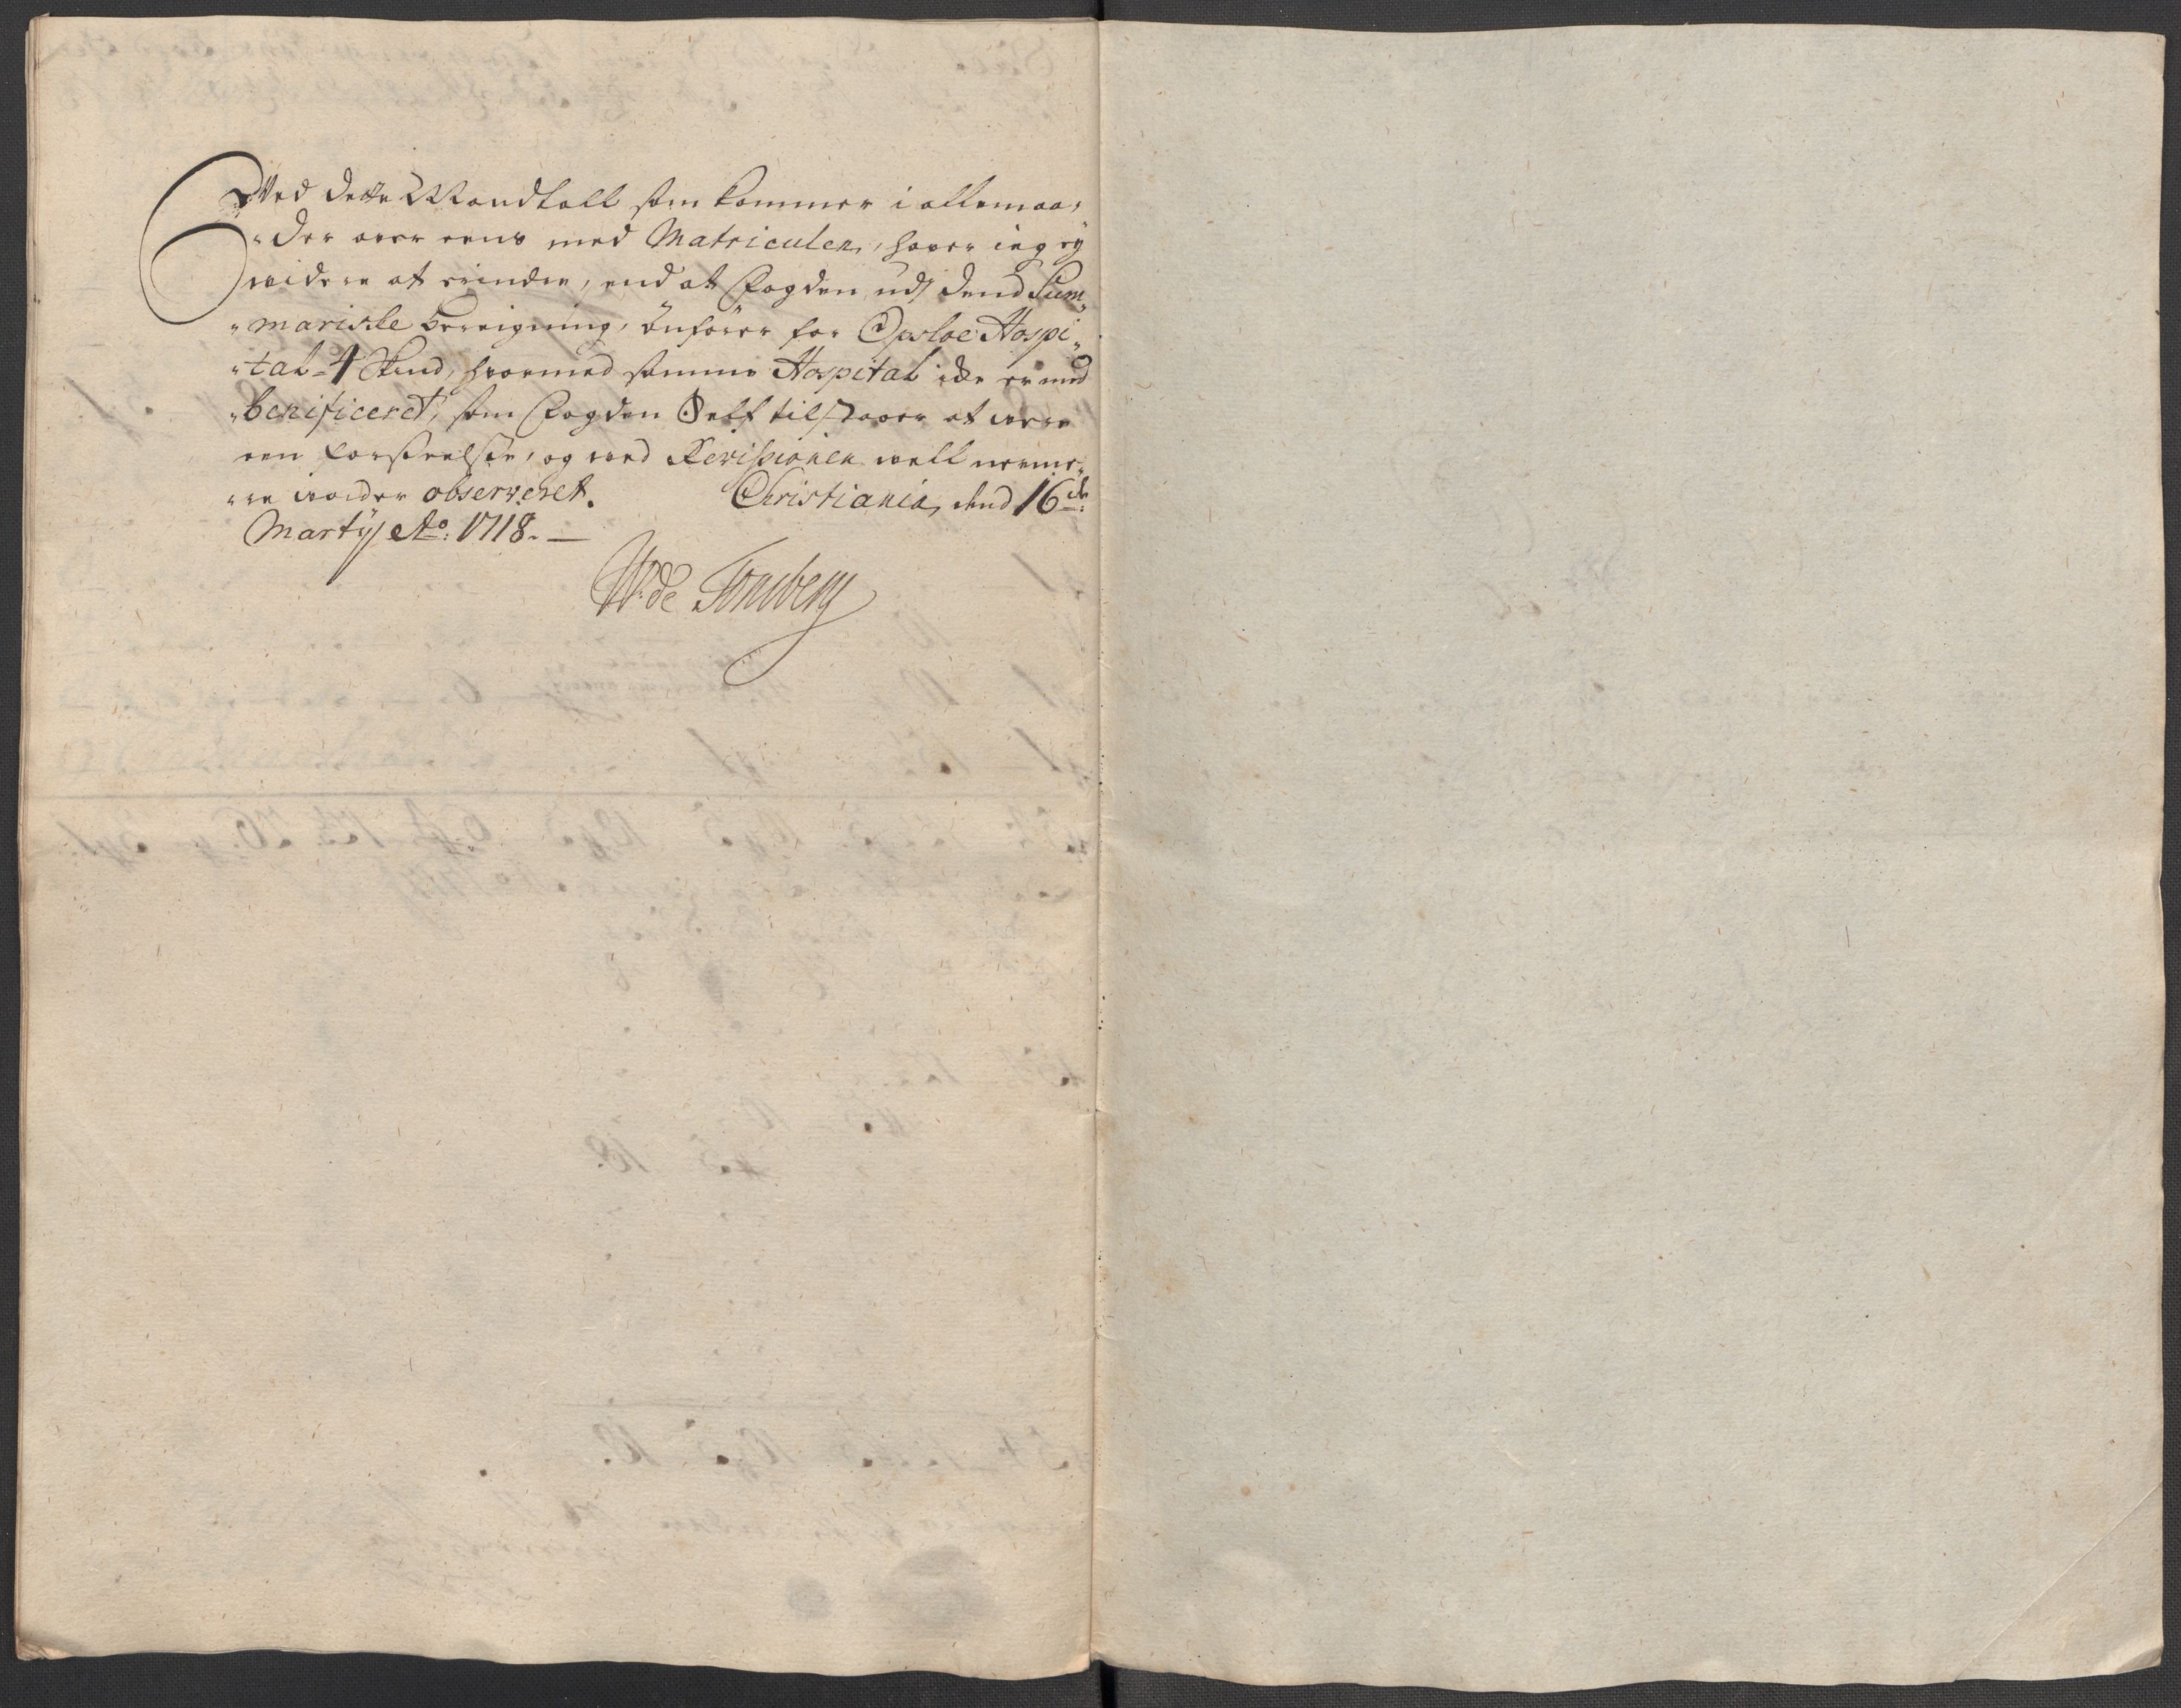 Ved dette Mandtall som kommer i allemaa,
„der over eens med Matriculen, haver ieg ey
widere at erindre, end at Fogden udj dend Sum„
„mariske bereigning, anfører for Opsloe Hospi„
„tal - 4 Skind, hvormed samme Hospital icke er med
„benificeret, som Fogden Self tilstaaer at være
een forseelse, og ved Revisionen vell nerme„
„re worder observeret. Christiania, dend 16de:
Martÿ Ao: 1718. —
W: de Tonsberg